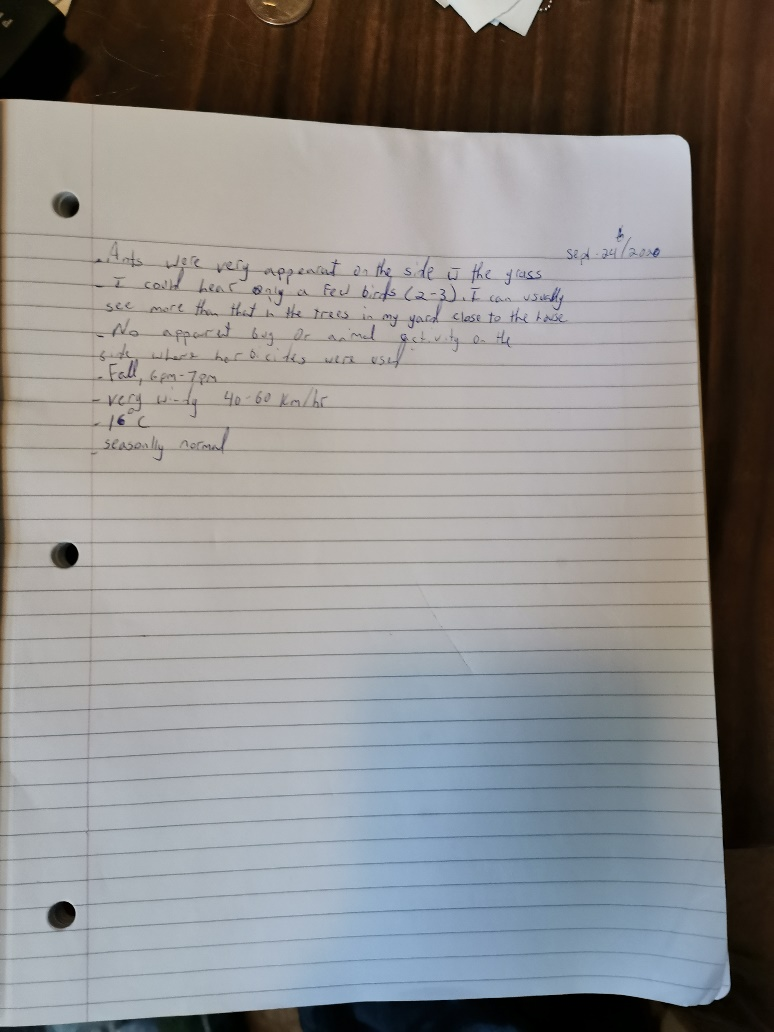 Sept-24/2020
- Ants were very appearant on the side w the grass
- I could hear only a few birds (2-3). I can usually
see more than that in the trees in my yard close to the house
- No apparent bug or animal activity on the
side where herbicides were used
- Fall, 6pm-7pm
- very windy 40-60 Km/hr
- 16°C
- seasonally normal